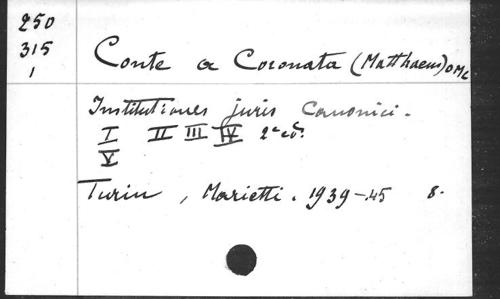 250
315
1
Conte a Coronata (Matthaeus) OMC
Institutiones juris Canonici.
I II III IV 2e ed.
V
Turin, Marietti. 1939-45 8.